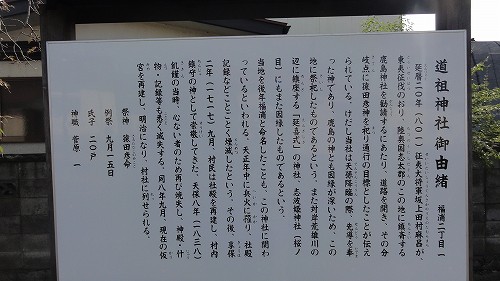 道祖神社御由緒 福浦二丁目一
延暦二〇年（八〇一）征夷大将軍坂上田村麻呂が、
東夷征伐のおり、陸奥国志太郡のこの地に鎮斎する
鹿島神社を勧請するにあたり、道路を開き、その分
岐点に猿田彦神を祀り通行の目標としたことが伝え
られている。けだし当社は天孫降臨の際、先導を奉
った神であり、鹿島の神とも因縁が深いため、この
地に祭祀したものであるという。また対岸荒雄川の
辺に鎮座する「延喜式」の神社、志波姫神社（桜ノ
目）にもまた因縁したものであるという。
当地を後年福浦と命名したことも、この神社に関わ
っているといわれる。天正年中に兵火に罹り、社殿
記録などことごとく燼滅したという。その後、享保
二年（一七一七）九月、村民は社殿を再建し、村内
鎮守の神として恭敬してきた。天保八年（一八三八）
飢饉の当時、心ない者のため再び焼失し、神殿・什
物・記録等も悉く滅失する。同八年九月、現在の仮
宮を再建し、明治になり、村社に列せられる。
祭神 猿田彦命
例祭 九月一五日
氏子 二〇戸
神職 菅原 一